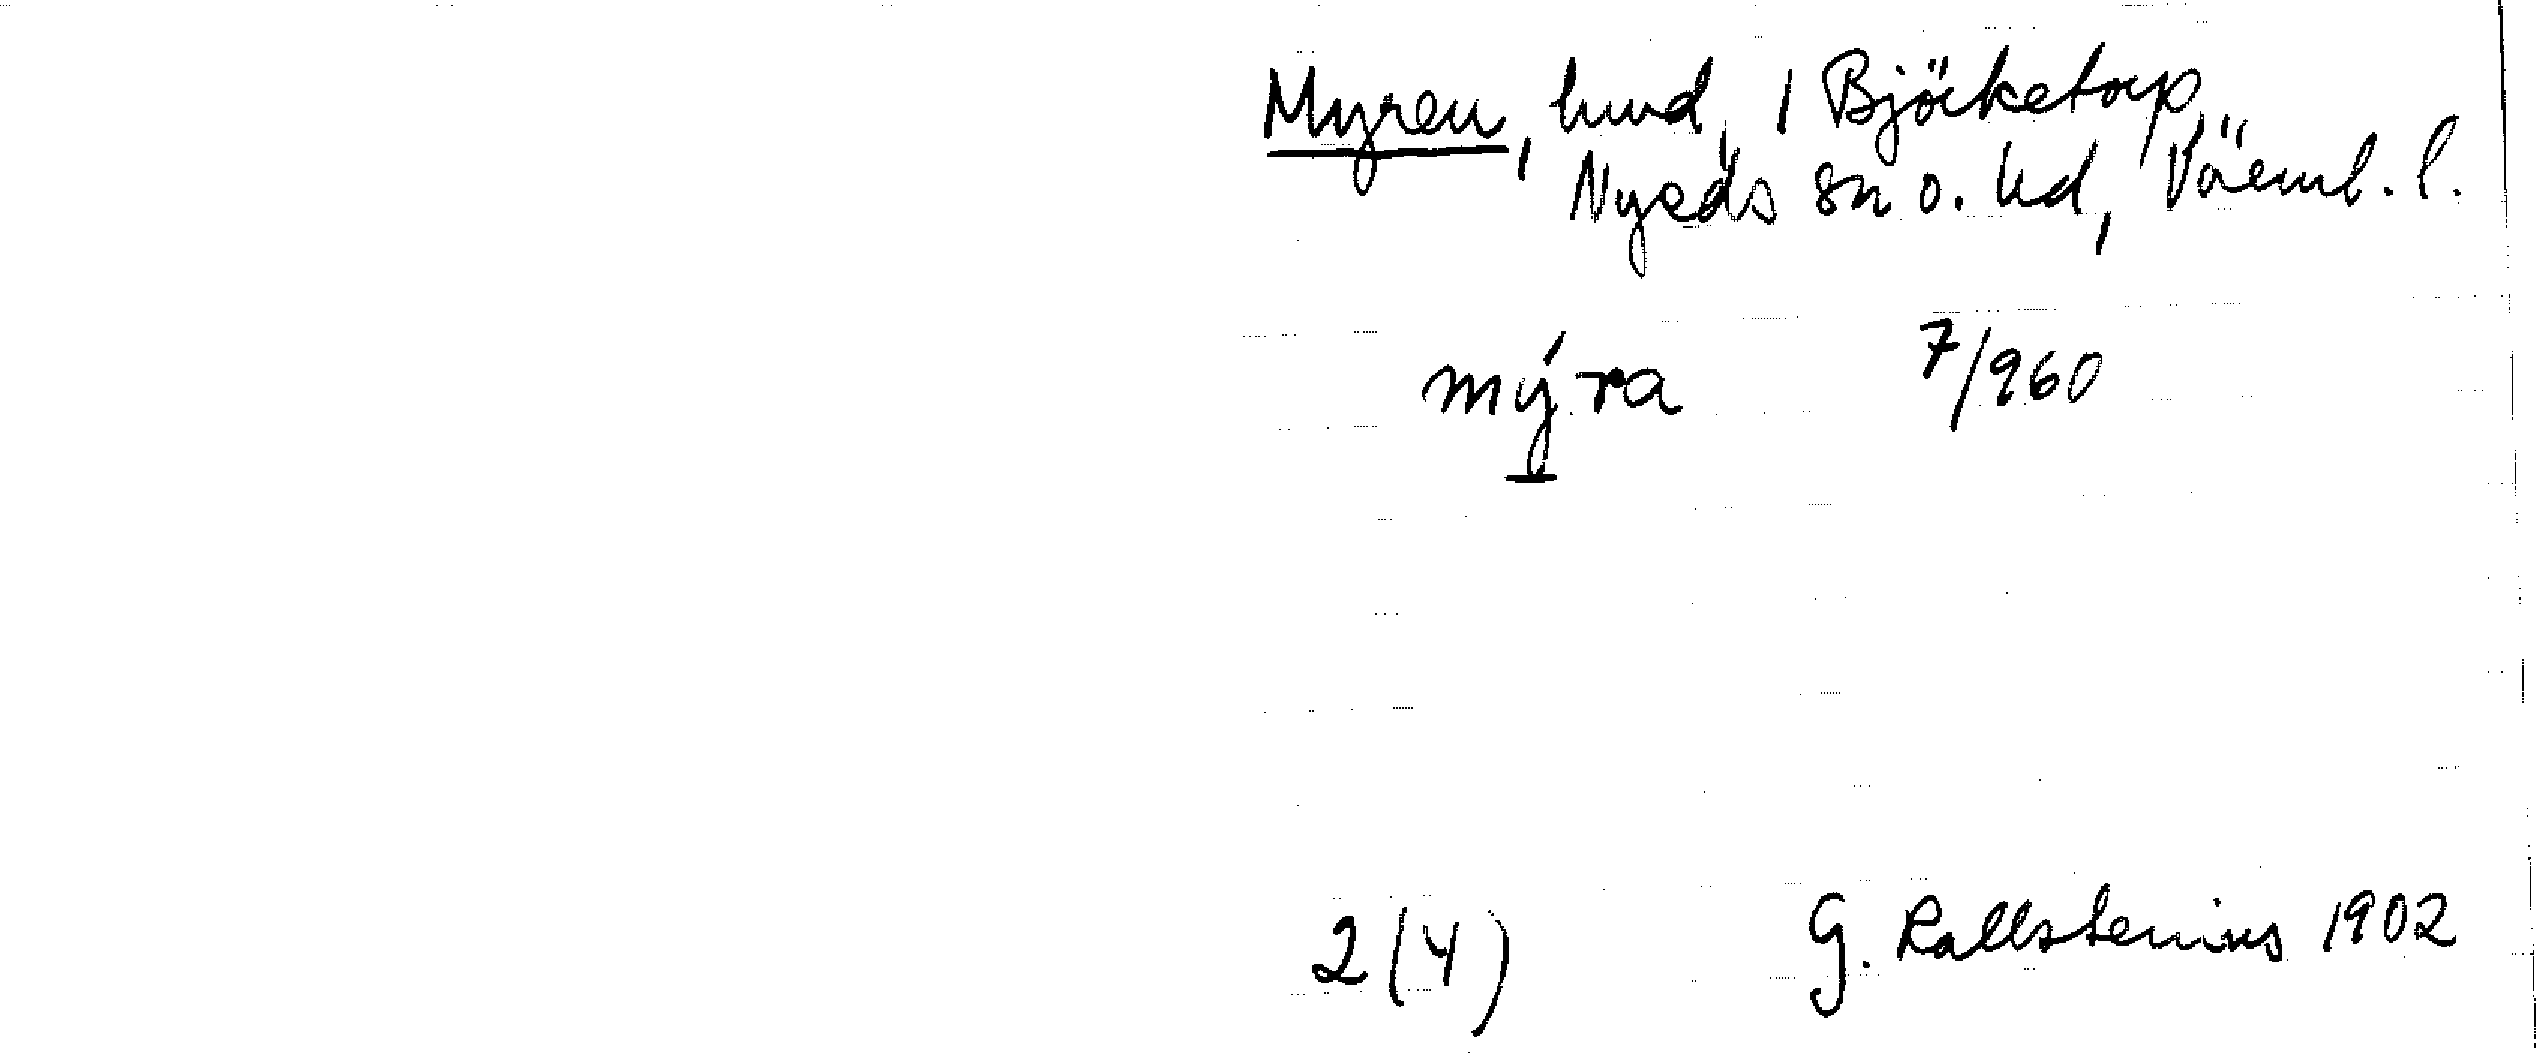 Myren, hmd, i Björketorp,
Nyeds sn o. hd, Värml. l.
mý̠ra 7/960
2(4) G. Kallstenius 1902